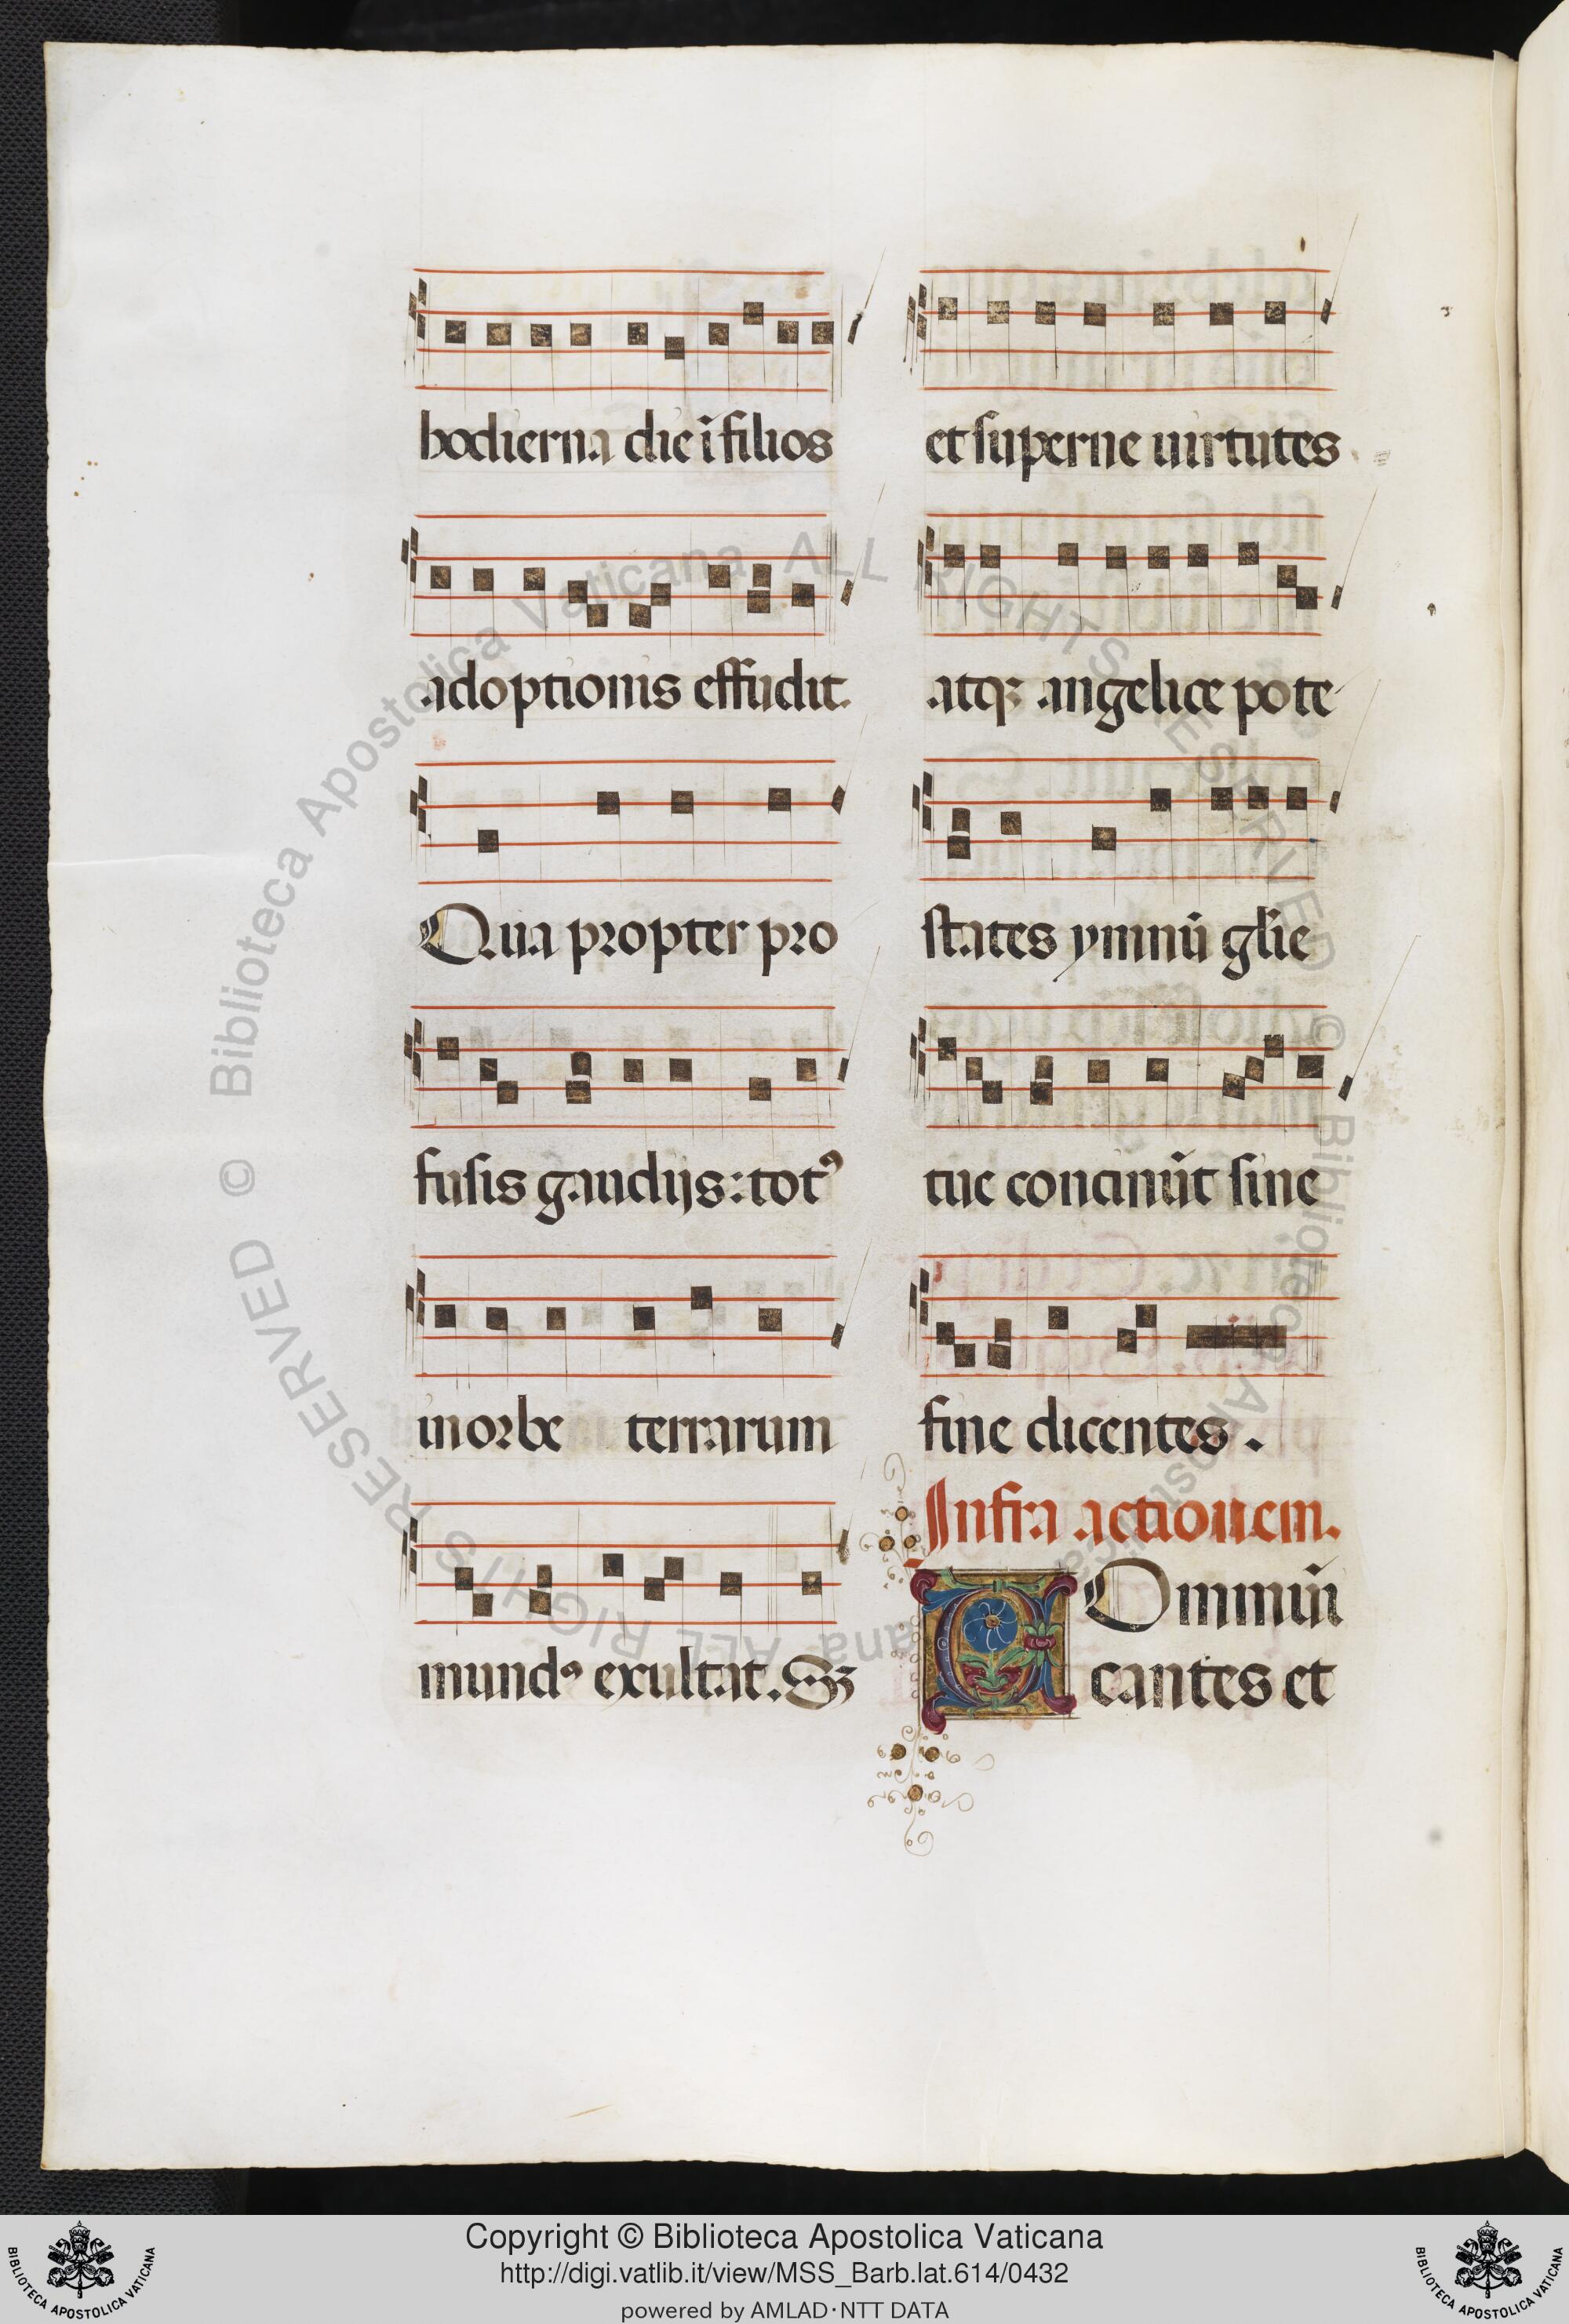 hodierna die ĩ filios
adoptionis effudit.
Qua propter pro
fusis gaudijs: totꝰ
in orbe terrarum
mundꝰ exultat. Sʒ
et superne uirtutes
atqꝫ angelice pote
states ymnũ glie
tue concinũt sine
fine dicentes.
Infra actionem.
COmmuni
cantes et
© Biblioteca Apostolica Vaticana ALL RIGHTS RESERVED © Biblioteca Apostolica Vaticana ALL RIGHTS RESERVED
Copyright © Biblioteca Apostolica Vaticana
http://digi.vatlib.it/view/MSS_Barb.lat.614/0432
powered by AMLAD·NTT DATA
BIBLIOTECA APOSTOLICA VATICANA
BIBLIOTECA APOSTOLICA VATICANA